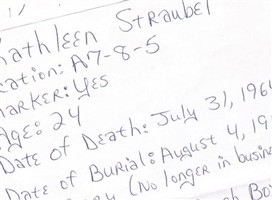 athleen Straubel
ation: A7-8-5
arker: Yes
Age: 24
Date of Death: July 31, 196
Date of Burial: August 4, 19
(No longer in busin
Bo